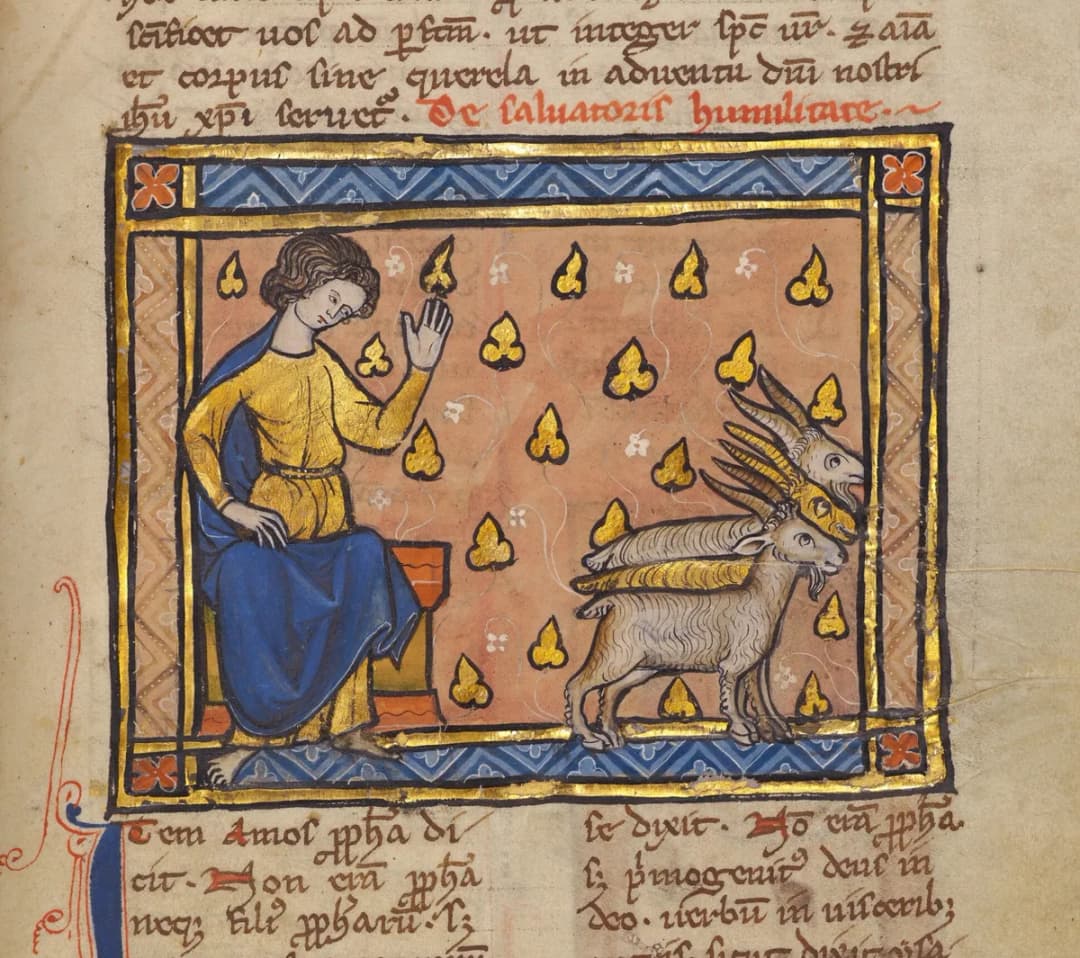 sc̄ificet uos ad ꝑfcm̄. ut integer sp̄c ur̄. ⁊ aīa
et corpus sine querela in aduentu dn̄i nostri
ih̄u xp̄i seruet᷑. De saluatoris humilitate.
Item Amos ꝓph̄a di
cit. Non erā ꝓph̄a
neqꝫ filiꝰ ꝓph̄arū. sꝫ
se dixit. Nō erā ꝓph̄a.
sꝫ p̓mogenitꝰ deus in
deo. uerbū in uisceribꝫ